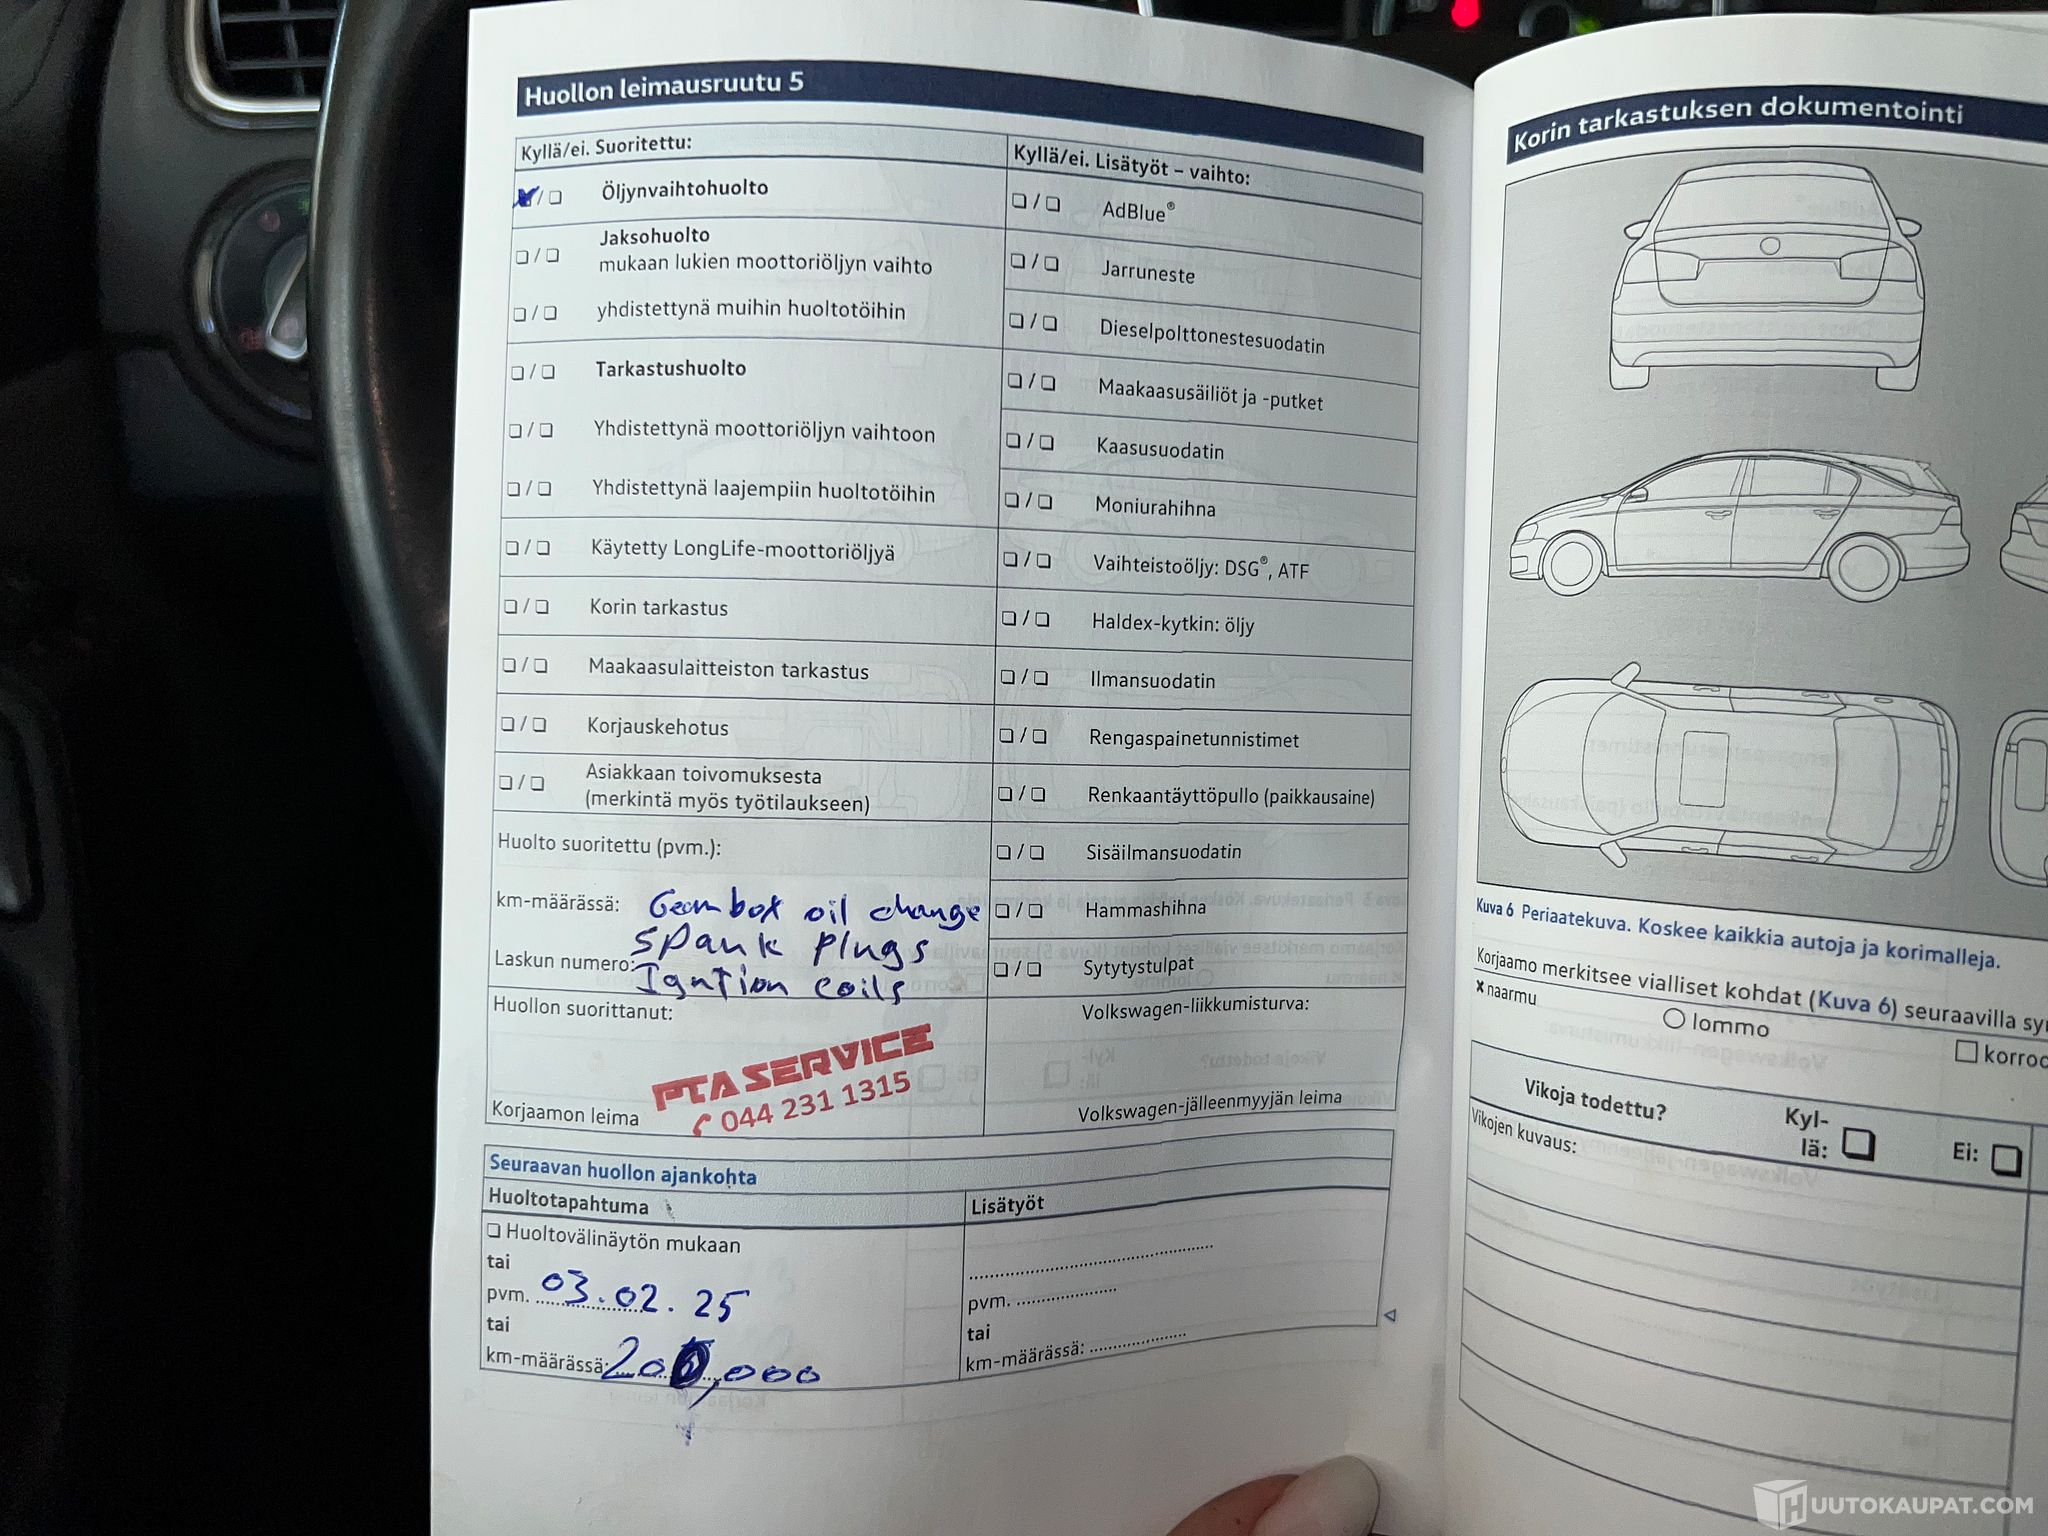 Huollon leimausruutu 5
Kyllä/ei. Suoritettu:
Öljynvaihtohuolto
Jaksohuolto
mukaan lukien moottoriöljyn vaihto
yhdistettynä muihin huoltotöihin
Tarkastushuolto
Yhdistettynä moottoriöljyn vaihtoon
Yhdistettynä laajempiin huoltotöihin
Käytetty LongLife-moottoriöljyä
Korin tarkastus
Maakaasulaitteiston tarkastus
Korjauskehotus
Asiakkaan toivomuksesta
(merkintä myös työtilaukseen)
Huolto suoritettu (pvm.):
km-määrässä: Geambox oil change
spank plugs
Laskun numero: Igntion coils
Huollon suorittanut:
PTA SERVICE
044 231 1315
Korjaamon leima
Kyllä/ei. Lisätyöt – vaihto:
AdBlue®
Jarruneste
Dieselpolttonestesuodatin
Maakaasusäiliöt ja -putket
Kaasusuodatin
Moniurahihna
Vaihteistoöljy: DSG®, ATF
Haldex-kytkin: öljy
Ilmansuodatin
Rengaspainetunnistimet
Renkaantäyttöpullo (paikkausaine)
Sisäilmansuodatin
Hammashihna
Sytytystulpat
Volkswagen-liikkumisturva:
Volkswagen-jälleenmyyjän leima
Seuraavan huollon ajankohta
Huoltotapahtuma
Huoltovälinäytön mukaan
tai
pvm. 03.02.25
tai
km-määrässä:
Lisätyöt
pvm.
tai
km-määrässä:
Korin tarkastuksen dokumentointi
Kuva 6 Periaatekuva. Koskee kaikkia autoja ja korimalleja.
Korjaamo merkitsee vialliset kohdat (Kuva 6) seuraavilla
× naarmu
lommo
Vikoja todettu?
Kyl-
lä:
Ei:
Vikojen kuvaus:
HUUTOKAUPAT.COM